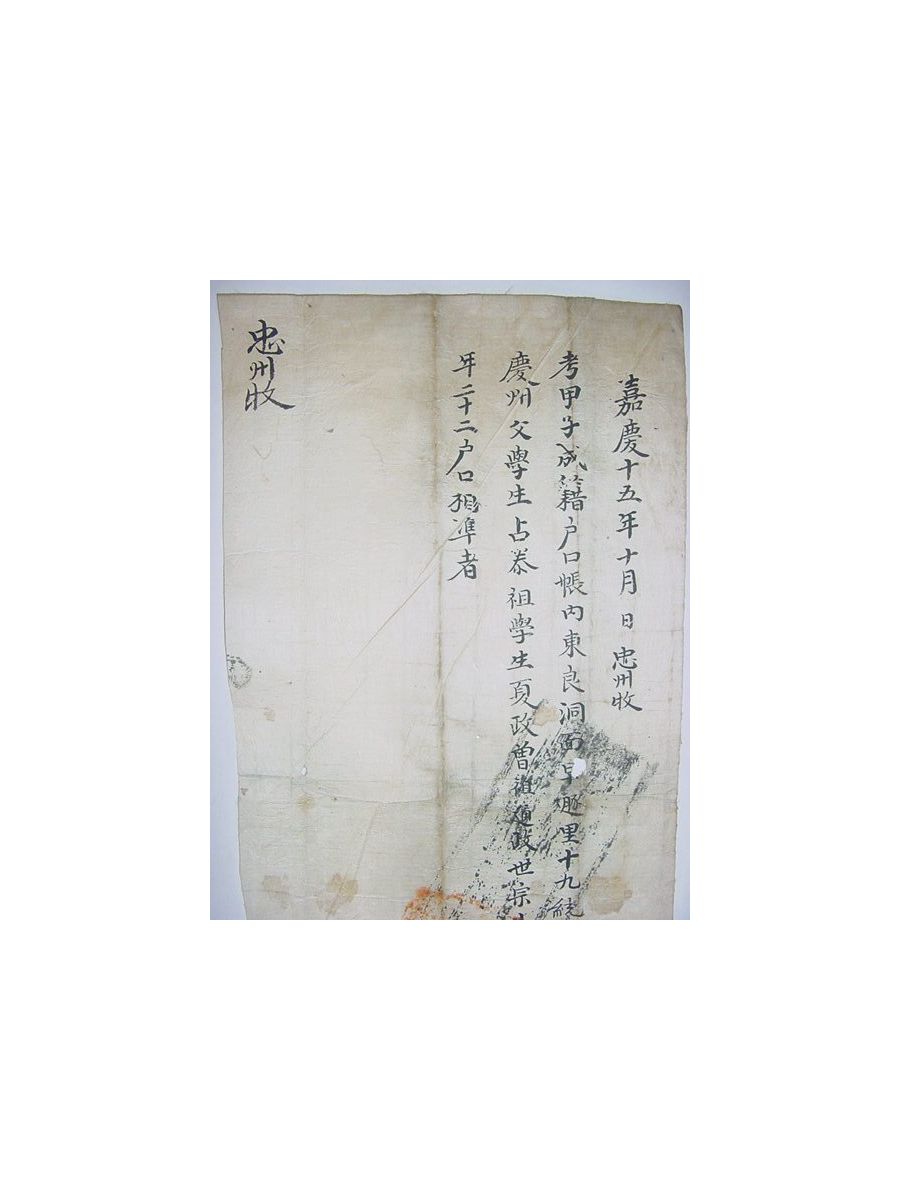 嘉慶十五年十月 日 忠州牧
考甲子成籍户口帳內東良洞面早遯里十九統
慶州父學生占泰祖學生夏政曾祖通政世宗
年二十二户口相準者
忠州牧